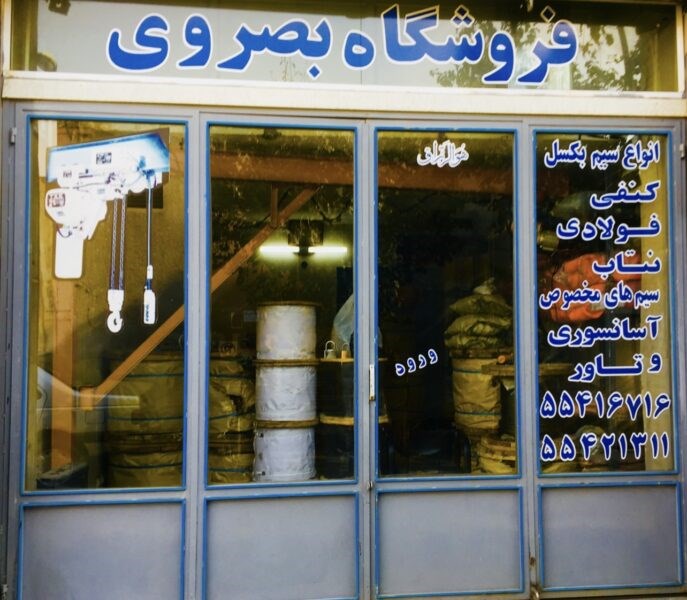 فروشگاه بصروی
هوالرزاق
ورود
انواع سیم بکسل
کنفی
فولادی
نتاب
سیم های مخصوص
آسانسوری
و تاور
۵۵۴۱۶۷۱۶
۵۵۴۲۱۳۱۱